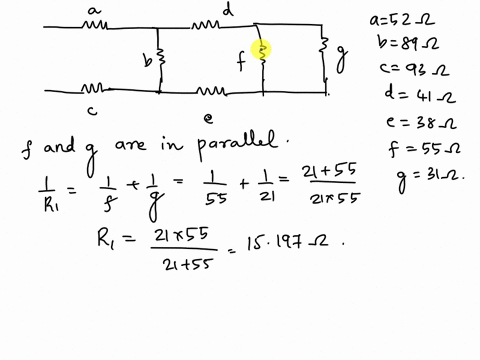 a
d
b
f
g
c
e
a=52Ω
b=89Ω
c=93Ω
d=41Ω
e=38Ω
f=55Ω
g=31Ω.
f and g are in parallel.
1/R1 = 1/f + 1/g = 1/55 + 1/21 = 21+55/21×55
R1 = 21×55/21+55 = 15.197Ω.